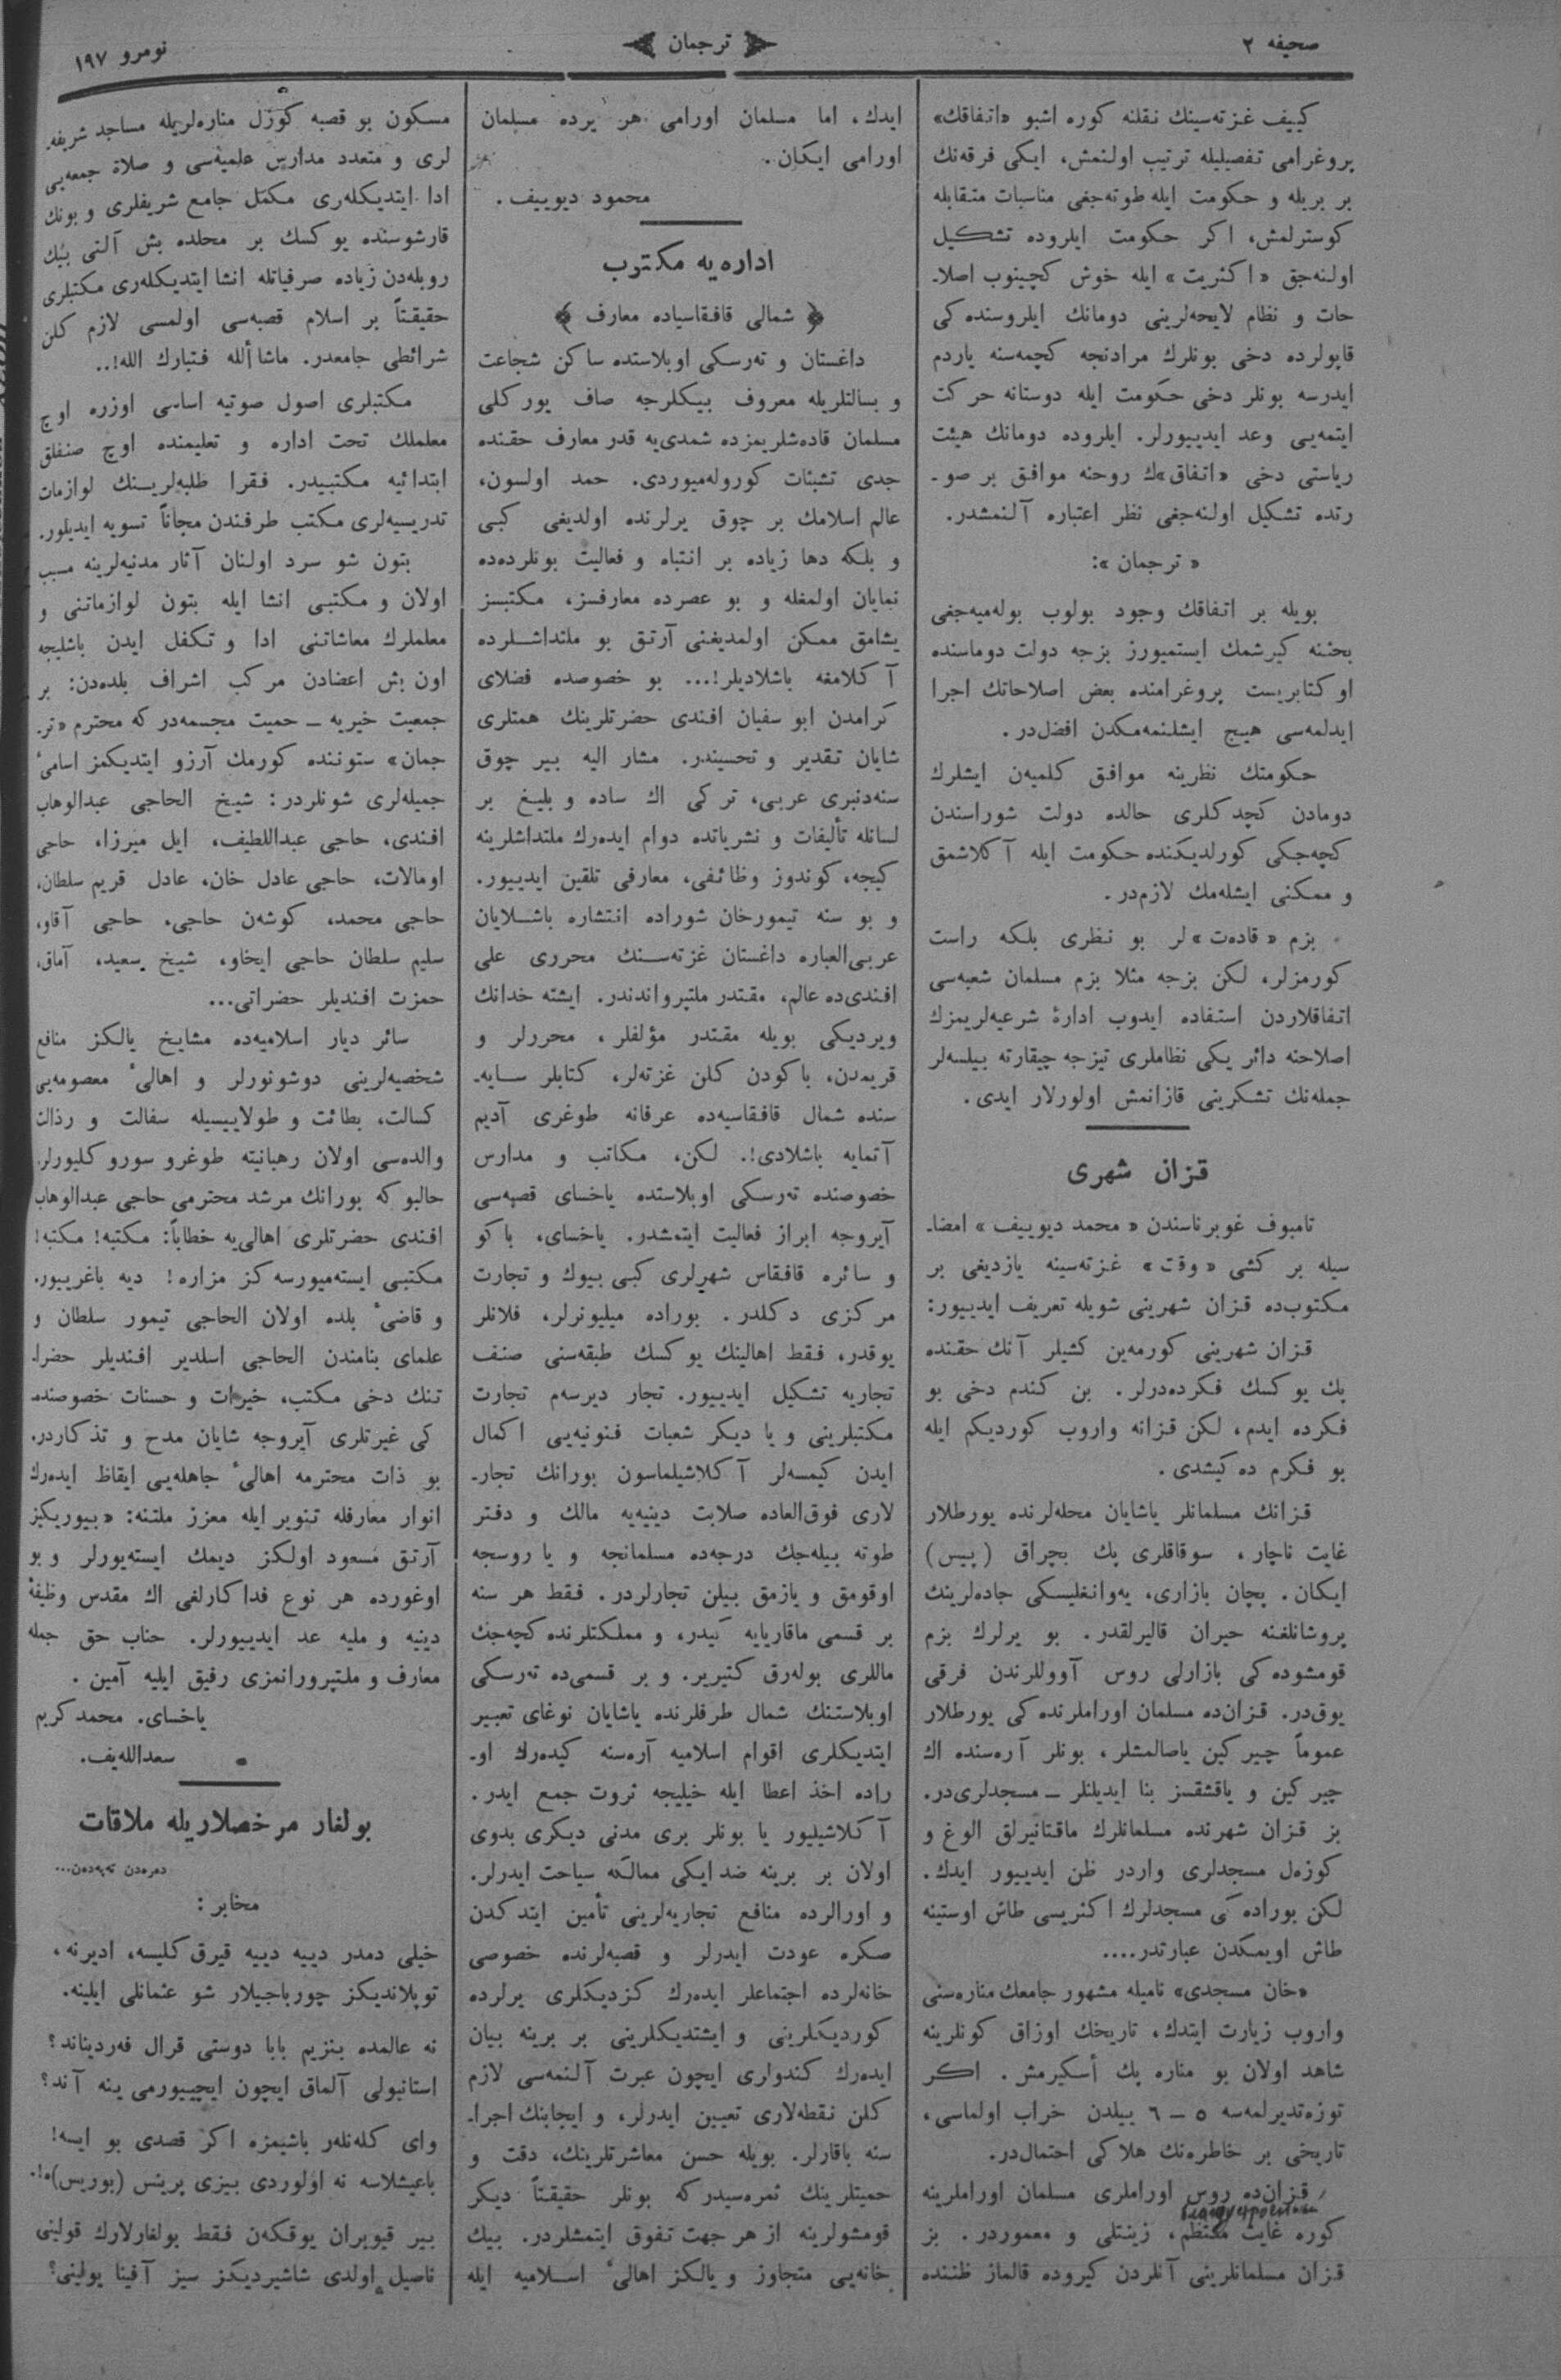 صحیفه ٢
ترجمان
نومرو ١٩٧
کییف غزته‌سینك نقلنه کوره اشبو «اتفاقك»
پروغرامی تفصیلیله ترتیب اولنمش، ایکی فرقه‌نك
بر بریله و حکومت ایله طوته‌جغی مناسبات متقابله
کوسترلمش، اکر حکومت ایلروده تشکیل
اولنه‌جق «اکثریت» ایله خوش کچینوب اصلا-
حات و نظام لایحه‌لرینی دومانك ایلروسنده‌کی
قاپولرده دخی بونلرك مرادنجه کچمه‌سنه یاردم
ایدرسه بونلر دخی حکومت ایله دوستانه حرکت
ایتمه‌یی وعد ایدییورلر. ایلروده دومانك هیئت
ریاستی دخی «اتفاق»ك روحنه موافق بر صو-
رتده تشکیل اولنه‌جغی نظر اعتباره آلنمشدر.
«ترجمان»:
بویله بر اتفاقك وجود بولوب بوله‌میه‌جغی
بحثنه کیرشمك ایستمیورز بزجه دولت دوماسنده
اوکتابریست پروغرامنده بعض اصلاحاتك اجرا
ایدلمه‌سی هیچ ایشلنمه‌مکدن افضل‌در.
حکومتك نظرینه موافق کلمیه‌ن ایشلرك
دومادن کچدکلری حالده دولت شوراسندن
کچه‌جکی کورلدیکنده حکومت ایله آکلاشمق
و ممکنی ایشله‌مك لازم‌در.
بزم «قاده‌ت»لر بو نظری بلکه راست
کورمزلر، لکن بزجه مثلا بزم مسلمان شعبه‌سی
اتفاقلاردن استفاده ایدوب ادارۀ شرعیه‌لریمزك
اصلاحنه دائر یکی نظاملری تیزجه چیقارته بیلسه‌لر
جمله‌نك تشکرینی قازانمش اولورلار ایدی.
قزان شهری
تامبوف غوبرناسندن «محمد دیوییف» امضا-
سیله بر کشی «وقت» غزته‌سینه یازدیغی بر
مکتوب‌ده قزان شهرینی شویله تعریف ایدییور:
قزان شهرینی کورمه‌ین کشیلر آنك حقنده
پك یوکسك فکرده‌درلر. بن کندم دخی بو
فکرده ایدم، لکن قزانه واروب کوردیکم ایله
بو فکرم ده‌کیشدی.
قزانك مسلمانلر یاشایان محله‌لرنده یورطلار
غایت ناچار، سوقاقلری پك بچراق (پیس)
ایکان. پچان بازاری، یه‌وانغلیسکی جاده‌لرینك
پروشانلغنه حیران قالیرلقدر. بو یرلرك بزم
قومشوده‌کی بازارلی روس آووللرندن فرقی
یوق‌در. قزان‌ده مسلمان اوراملرنده‌کی یورطلار
عموماً چیرکین یاصالمشلر، بونلر آره‌سنده اك
چیرکین و یاقشقسز بنا ایدیلنلر ـ مسجدلری‌در.
بز قزان شهرنده مسلمانلرك ماقتانیرلق الوغ و
کوزه‌ل مسجدلری واردر ظن ایدییور ایدك.
لکن بوراده‌کی مسجدلرك اکثریسی طاش اوستینه
طاش اویمکدن عبارتدر....
«خان مسجدی» نامیله مشهور جامعك مناره‌سنی
واروب زیارت ایتدك، تاریخك اوزاق کونلرینه
شاهد اولان بو مناره پك أسکیرمش. اکر
توزه‌تدیرلمه‌سه ٥ ـ ٦ ییلدن خراب اولماسی،
تاریخی بر خاطره‌نك هلاکی احتمال‌در.
قزان‌ده روس اوراملری مسلمان اوراملرینه
کوره غایت منتظم، زینتلی و معموردر. بز
قزان مسلمانلرینی آنلردن کیروده قالماز ظننده
ایدك، اما مسلمان اورامی هر یرده مسلمان
اورامی ایکان.
محمود دیوییف.
اداره‌یه مکتوب
﴿ شمالی قافقاسیاده معارف ﴾
داغستان و ته‌رسکی اوبلاستده ساکن شجاعت
و بسالتلریله معروف بیکلرجه صاف یورکلی
مسلمان قاده‌شلریمزده شمدی‌یه قدر معارف حقنده
جدی تشبثات کوروله‌میوردی. حمد اولسون،
عالم اسلامك بر چوق یرلرنده اولدیغی کبی
و بلکه دها زیاده بر انتباه و فعالیت بونلرده‌ده
نمایان اولمغله و بو عصرده معارفسز، مکتبسز
یشامق ممکن اولمدیغنی آرتق بو ملتداشلرده
آکلامغه باشلادیلر!... بو خصوصده فضلای
کرامدن ابو سفیان افندی حضرتلرینك همتلری
شایان تقدیر و تحسیندر. مشار الیه بیر چوق
سنه‌دنبری عربی، ترکی اك ساده و بلیغ بر
لسانله تألیفات و نشریاتده دوام ایده‌رك ملتداشلرینه
کیجه، کوندوز وظائفی، معارفی تلقین ایدییور.
و بو سنه تیمورخان شوراده انتشاره باشلایان
عربی‌العباره داغستان غزته‌سنك محرری علی
افندی‌ده عالم، مقتدر ملتپرواندندر. ایشته خدانك
ویردیکی بویله مقتدر مؤلفلر، محررلر و
قریمدن، باکودن کلن غزته‌لر، کتابلر سایه-
سنده شمال قافقاسیه‌ده عرفانه طوغری آدیم
آتمایه باشلادی!. لکن، مکاتب و مدارس
خصوصنده ته‌رسکی اوبلاستده یاخسای قصبه‌سی
آیروجه ابراز فعالیت ایتمشدر. یاخسای، باکو
و سائره قافقاس شهرلری کبی بیوك و تجارت
مرکزی دکلدر. بوراده میلیونرلر، فلانلر
یوقدر، فقط اهالینك یوکسك طبقه‌سنی صنف
تجاریه تشکیل ایدییور. تجار دیرسه‌م تجارت
مکتبلرینی و یا دیکر شعبات فنونیه‌یی اکمال
ایدن کیمسه‌لر آکلاشیلماسون بورانك تجار-
لاری فوق‌العاده صلابت دینیه‌یه مالك و دفتر
طوته بیله‌جك درجه‌ده مسلمانجه و یا روسجه
اوقومق و یازمق بیلن تجارلردر. فقط هر سنه
بر قسمی ماقاریایه کیدر، و مملکتلرنده کچه‌جك
ماللری بوله‌رق کتیریر. و بر قسمی‌ده ته‌رسکی
اوبلاستنك شمال طرفلرنده یاشایان نوغای تعبیر
ایتدیکلری اقوام اسلامیه آره‌سنه کیده‌رك او-
راده اخذ اعطا ایله خیلیجه ثروت جمع ایدر.
آکلاشیلیور یا بونلر بری مدنی دیکری بدوی
اولان بر برینه ضد ایکی ممالکه سیاحت ایدرلر.
و اورالرده منافع تجاریه‌لرینی تأمین ایتدکدن
صکره عودت ایدرلر و قصبه‌لرنده خصوصی
خانه‌لرده اجتماعلر ایده‌رك کزدیکلری یرلرده
کوردیکلرینی و ایشتدیکلرینی بر برینه بیان
ایده‌رك کندواری ایچون عبرت آلنمه‌سی لازم
کلن نقطه‌لاری تعیین ایدرلر، و ایجابنك اجرا-
سنه باقارلر. بویله حسن معاشرتلرینك، دقت و
حمیتلرینك ثمره‌سیدرکه بونلر حقیقتاً دیکر
قومشولرینه از هر جهت تفوق ایتمشلردر. بیك
خانه‌یی متجاوز و یالکز اهالیٔ اسلامیه ایله
مسکون بو قصبه کوزل مناره‌لریله مساجد شریفه-
لری و متعدد مدارس علمیه‌سی و صلاة جمعه‌یی
ادا ایتدیکله‌ری مکمل جامع شریفلری و بونك
قارشوسنده یوکسك بر محلده بش آلتی بیك
روبله‌دن زیاده صرفیاتله انشا ایتدیکله‌ری مکتبلری
حقیقتاً بر اسلام قصبه‌سی اولمسی لازم کلن
شرائطی جامعدر. ماشا ألله فتبارك الله!..
مکتبلری اصول صوتیه اساسی اوزره اوچ
معلملك تحت اداره و تعلیمنده اوچ صنفلق
ابتدائیه مکتبیدر. فقرا طلبه‌لرینك لوازمات
تدریسیه‌لری مکتب طرفندن مجاناً تسویه ایدیلور.
بتون شو سرد اولنان آثار مدنیه‌لرینه مسبب
اولان و مکتبی انشا ایله بتون لوازماتنی و
معلملرك معاشاتنی ادا و تکفل ایدن باشلیجه
اون بش اعضادن مرکب اشراف بلده‌دن: بر
جمعیت خیریه ـ حمیت مجسمه‌در که محترم «تر-
جمان» ستوننده کورمك آرزو ایتدیکمز اسامیٔ
جمیله‌لری شونلردر: شیخ الحاجی عبدالوهاب
افندی، حاجی عبداللطیف، ایل میرزا، حاجی
اومالات، حاجی عادل خان، عادل قریم سلطان،
حاجی محمد، کوشه‌ن حاجی. حاجی آقاو،
سلیم سلطان حاجی ایخاو، شیخ سعید، آماق،
حمزت افندیلر حضراتی...
سائر دیار اسلامیه‌ده مشایخ یالکز منافع
شخصیه‌لرینی دوشونورلر و اهالیٔ معصومه‌یی
کسالت، بطائت و طولاییسیله سفالت و رذالت
والده‌سی اولان رهبانیته طوغرو سوروکلیورلر.
حالبوکه بورانك مرشد محترمی حاجی عبدالوهاب
افندی حضرتلری اهالی‌یه خطاباً: مکتبه! مکتبه!
مکتبی ایسته‌میورسه‌کز مزاره! دیه باغرییور.
و قاضیٔ بلده اولان الحاجی تیمور سلطان و
علمای بنامندن الحاجی اسلدیر افندیلر حضرا-
تنك دخی مکتب، خیرات و حسنات خصوصنده-
کی غیرتلری آیروجه شایان مدح و تذکاردر.
بو ذات محترمه اهالیٔ جاهله‌یی ایقاظ ایده‌رك
انوار معارفله تنویر ایله معزز ملتنه: «بیوریکز
آرتق مسعود اولکز دیمك ایسته‌یورلر و بو
اوغورده هر نوع فداکارلغی اك مقدس وظیفۀ
دینیه و ملیه عد ایدییورلر. جناب حق جمله
معارف و ملتپرورانمزی رفیق ایلیه آمین.
یاخسای. محمد کریم
سعدالله‌یف.
بولغار مرخصلاریله ملاقات
دره‌دن ته‌په‌دن...
مخابر:
خیلی دمدر دییه دییه قیرق کلیسه، ادیرنه،
توپلاندیکز چورباجیلار شو عثمانلی ایلینه.
نه عالمده بنزیم بابا دوستی قرال فه‌ردیناند؟
استانبولی آلماق ایچون ایچییورمی ینه آند؟
وای کله‌نله‌ر باشیمزه اکر قصدی بو ایسه!
باغیشلاسه نه اولوردی بیزی پرینس (بوریس)ه!.
بیر قیوبران یوقکه‌ن فقط بولغارلارك قولینی
ناصیل اولدی شاشیردیکز سیز آفینا یولینی؟